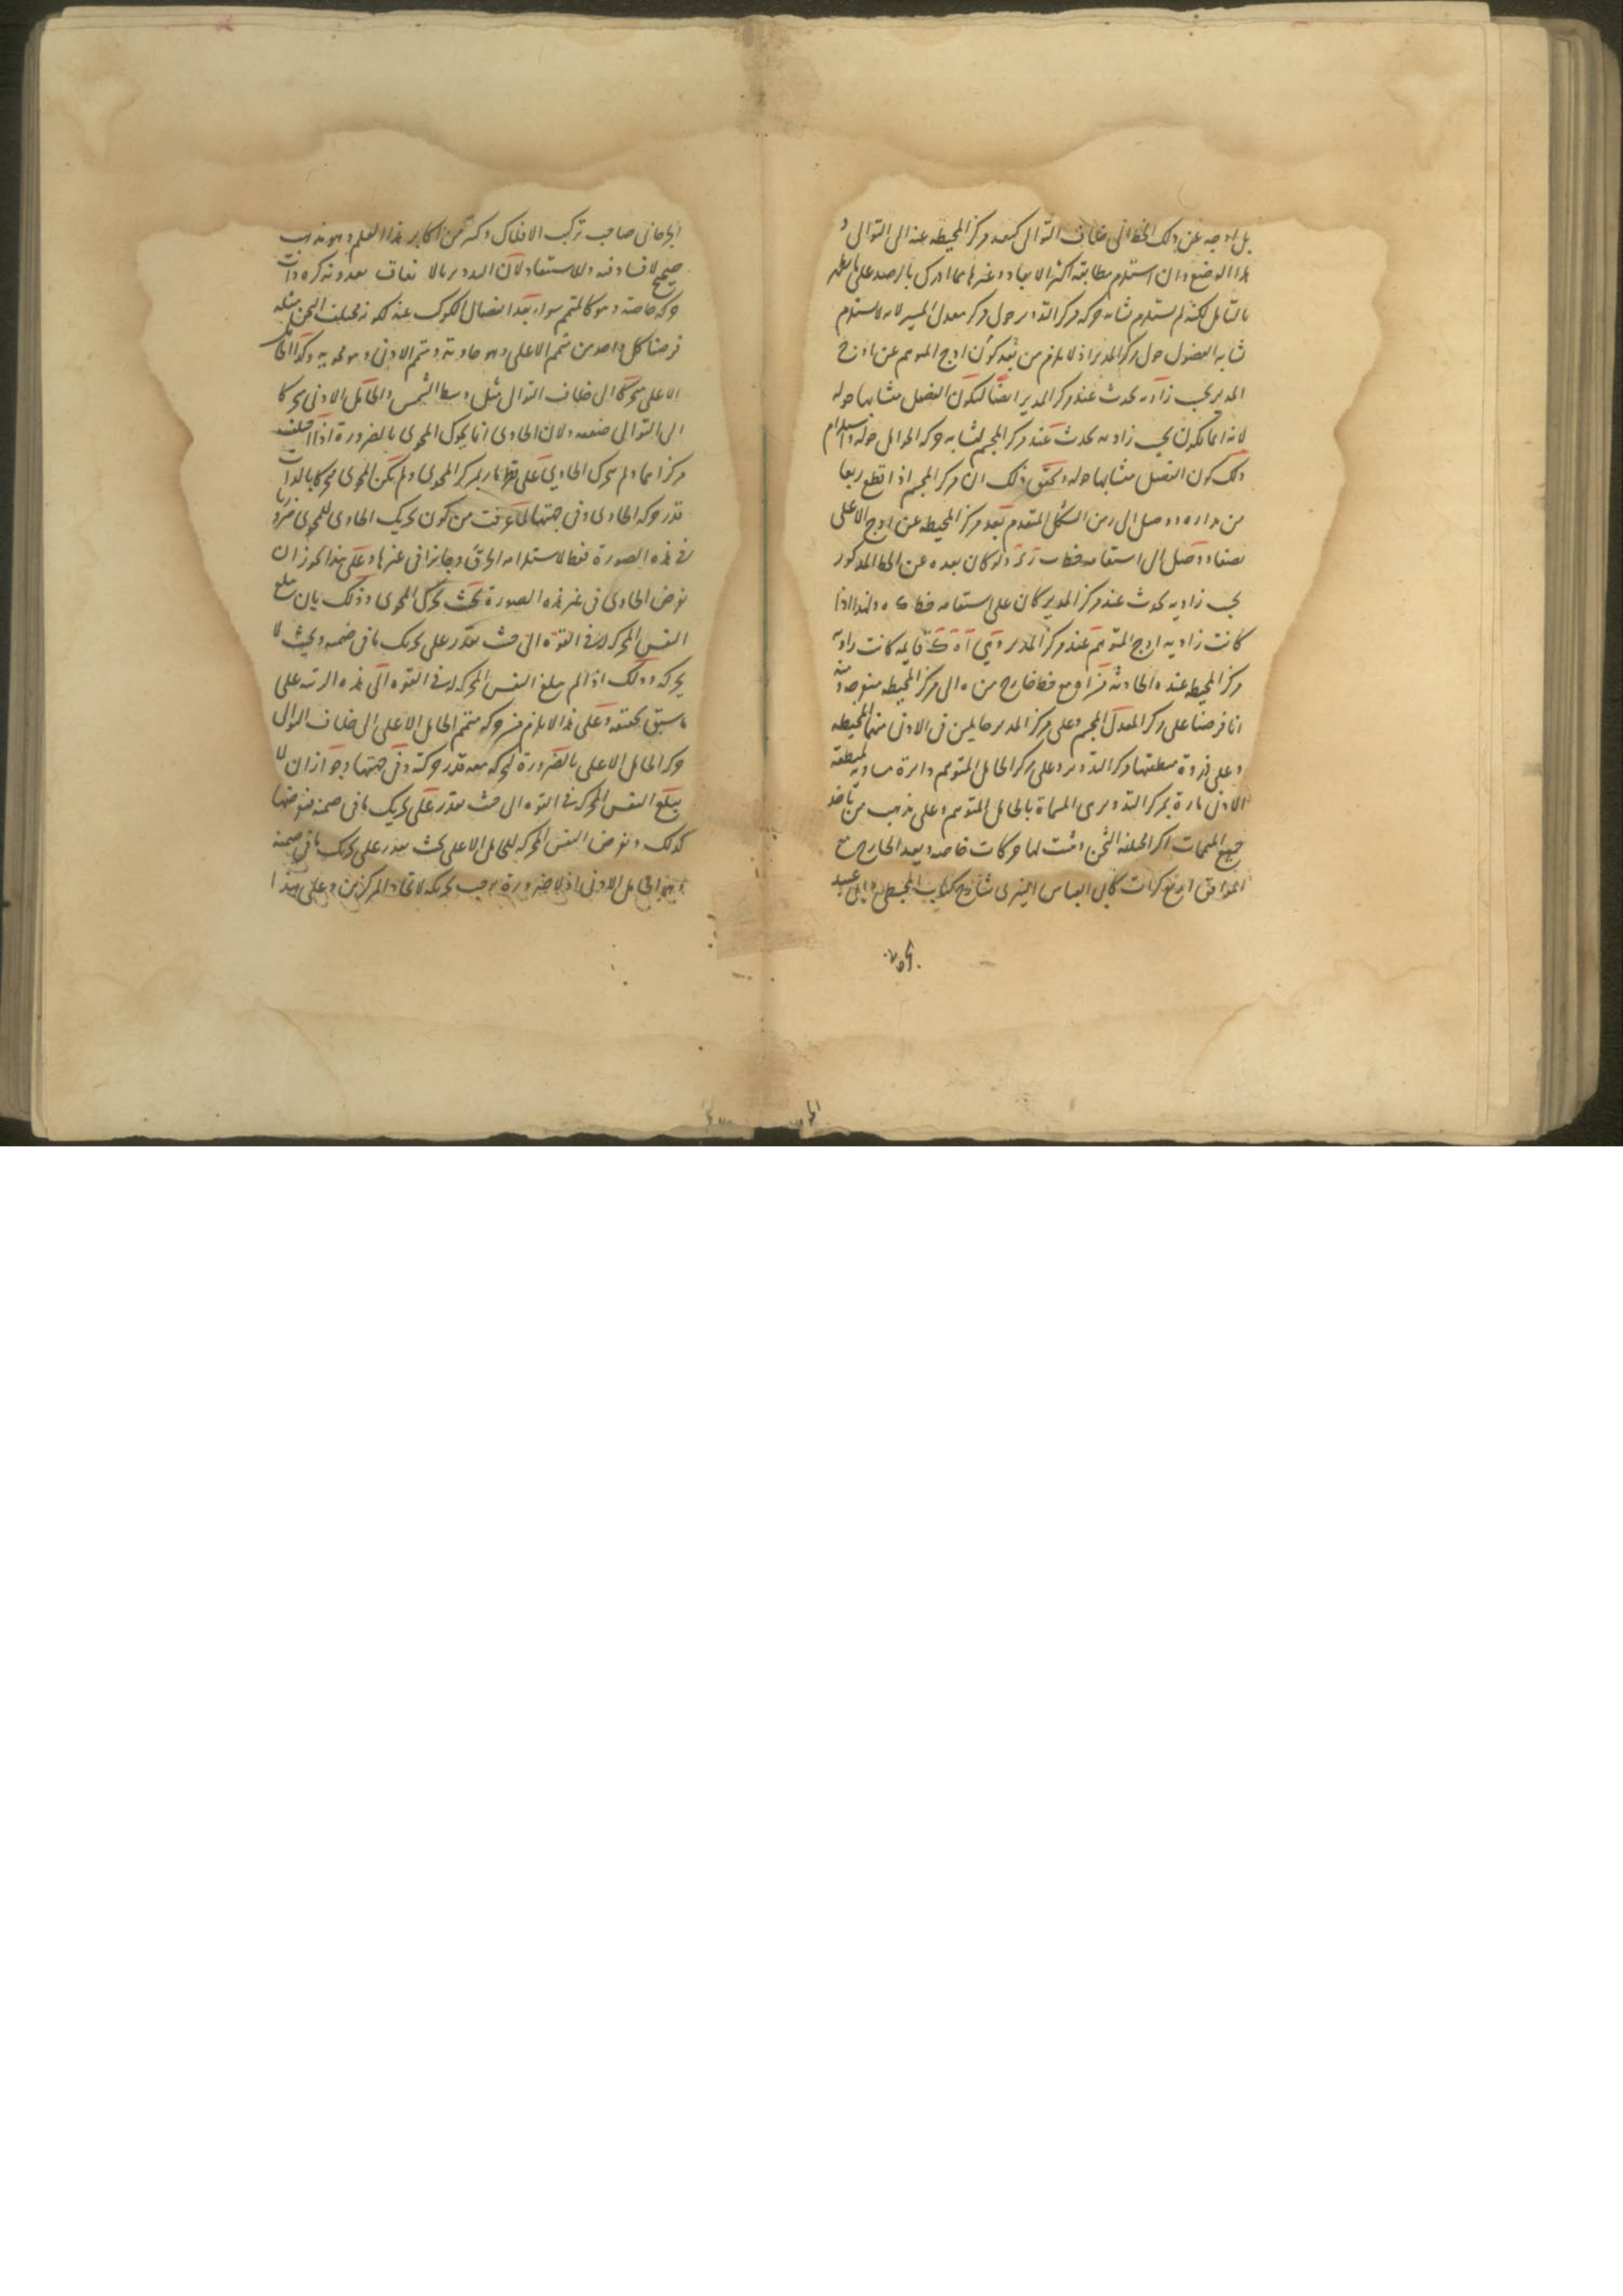 بل اوجه عن ذلك الخط الى خلاف التوالى كبعد مركز المحيطه عنه الى التوالى و
هذا الوضع وان استلزم مطابقة اكثر الابعاد وغيرها مما ادرك بالرصد على ما يظهر
بالتامل لكنه لم يستلزم تشابه حركه مركز التدوير حول مركز معدل المسير لانه لا يستلزم
تشابه الفضول حول مركز المدير اذ لا يلزم من بعد كون اوج المتوهم عن اوج
المدير بحسب زاويه يحدث عند مركز المدير ايضا ليكون الفضل متشابها حوله
لانه انما يكون بحسب زاويه يحدث عند مركز المجسم لتشابه حركه الحوامل حوله واستلزام
ذلك كون الفضل متشابها حوله وتحقق ذلك ان مركز المجسم اذا قطع ربعا
من مداره ووصل الى من الشكل المتقدم بعد مركز المحيطه عن اوج الاعلى
نصفا ووصل الى استقامه خط ولو كان بعده عن الخط المذكور
بحسب زاويه يحدث عند مركز المدير كان على استقامه خط ولهذا اذا
كانت زاويه اوج المتوهم عند مركز المدير وهى قايمه كانت زاوية
مركز المحيطه عنده الحادثه من مع خط خارج من ه الى مركز المحيطه منفرجه
انا فرضنا على مركز المعدل المجسم وعلى مركز المدير حاملين فى الادنى منهما المحيطه
وعلى ذروة منطقتها مركز التدوير وعلى مركز الحامل المتوهم دائرة مساويه لمنطقه
الادنى مارة بمركز التدوير هى المسماة بالحامل المتوهم وعلى مذهب من ياخذ
جميع المتممات اكرا مختلفه الثخن اثبت لها حركات خاصه ويعد الخارج مع
الموافق اربع كرات كابى العباس النيريزى شارح كتاب المجسطى وابى عبيد
الجرجانى صاحب تركيب الافلاك وكثير من اكابر هذا العلم وهو مذهب
صحيح لا فساد فيه ولا استبعاد لان التدوير بالاتفاق يعدونه كره ذات
حركه خاصة وهو كالمتمم سواء بعد انفصال الكوكب عنه لكونه مختلف الثخن مثله
فرضنا كل واحد من متمم الاعلى وهو حاويه ومتمم الادنى وهو محويه وكذا الحامل
الاعلى متحركا الى خلاف التوالى مثل وسط الشمس والحامل الادنى متحركا
الى التوالى ضعفه ولان الحاوى انما يحرك المحوى بالضرورة اذا اختلف
مركزاهما ولم يتحرك الحاوى على قطر مار بمركز المحوى ولم يكن المحوى متحركا بالذات
قدر حركه الحاوى وفى جهتها لما عرفت من كون تحريك الحاوى للمحوى ضروريا
فى هذه الصورة فقط لاستلزامه الخرق وجايزا فى غيرها وعلى هذا يجوز ان
نفرض الحاوى فى غير هذه الصورة بحيث يحرك المحوى وذلك بان يبلغ
النفس المحركه له فى القوة الى حيث يقدر على تحريك ما فى ضمنه وبحيث لا
يحركه وذلك اذا لم يبلغ النفس المحركه له فى القوه الى هذه المرتبه على
ما سبق تحقيقه وعلى هذا لا يلزم من حركه متمم الحامل الاعلى الى خلاف التوالى
حركة الحامل الاعلى بالضرورة لتحركه معه قدر حركته وفى جهتها وجواز ان لا
يبلغ النفس المحركه فى القوه الى حيث يقدر على تحريك ما فى ضمنه فنفرضها
كذلك ونفرض النفس المحركه للحامل الاعلى بحيث يقدر على تحريك ما فى ضمنه
وهو الحامل الادنى اذ لا ضرورة توجب تحريكه لاتحاد المركزين وعلى هذا